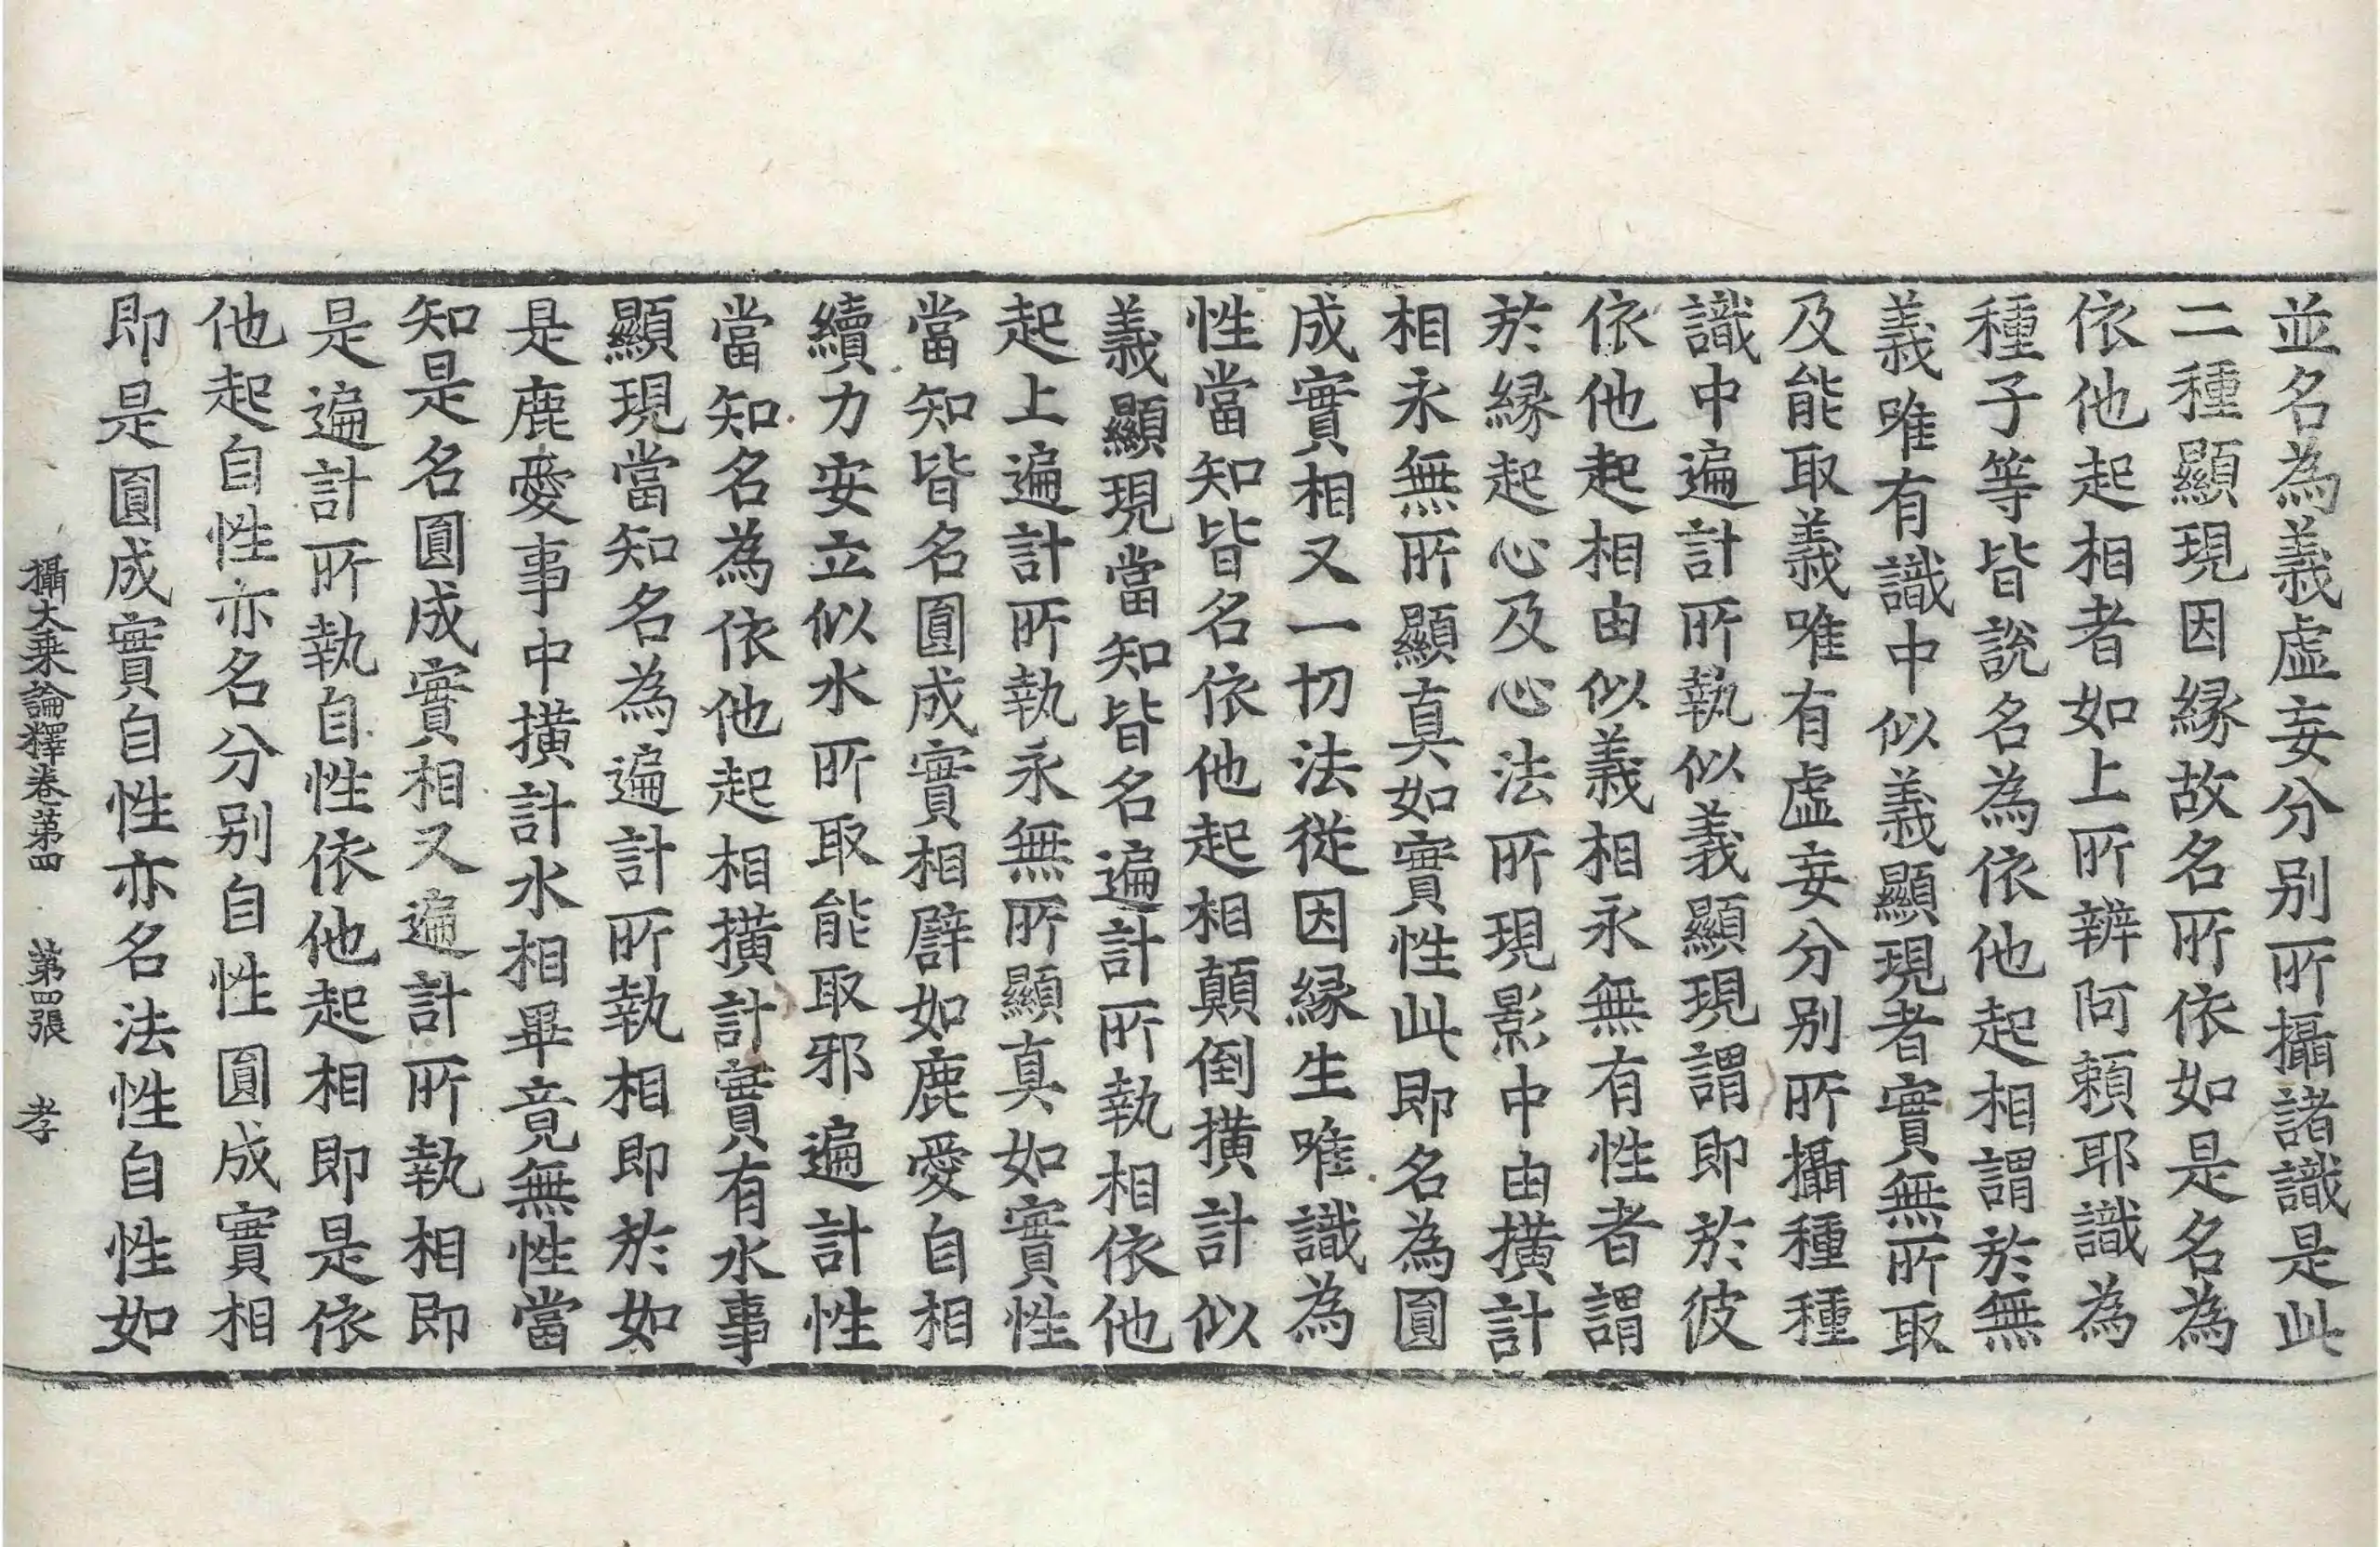 並名為義虛妄分别所攝諸識是此
二種顯現因縁故名所依如是名為
依他起相者如上所辨阿頼耶識為
種子等皆說名為依他起相謂於無
義唯有識中似義顯現者實無所取
及能取義唯有虛妄分别所攝種種
識中遍計所執似義顯現謂即於彼
依他起相由似義相永無有性者謂
於縁起心及心法所現影中由横計
相永無所顯真如實性此即名為圓
成實相又一切法從因縁生唯識為
性當知皆名依他起相顛倒横計似
義顯現當知皆名遍計所執相依他
起上遍計所執永無所顯真如實性
當知皆名圓成實相譬如鹿愛自相
續力安立似水所取能取邪遍計性
當知名為依他起相横計實有水事
顯現當知名為遍計所執相即於如
是鹿愛事中横計水相畢竟無性當
知是名圓成實相又遍計所執相即
是遍計所執自性依他起相即是依
他起自性亦名分别自性圓成實相
即是圓成實自性亦名法性自性如
攝大乗論釋卷第四 第四張 孝